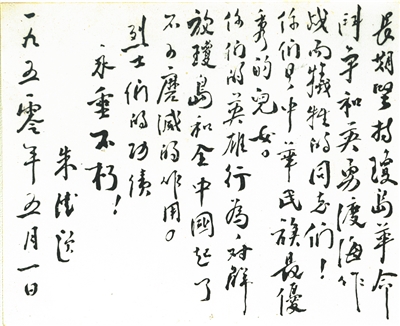 長期堅持瓊島革命
鬥争和英勇渡海作
战而犧牲的同志们！
你们是中華民族最優
秀的兒女。
你们的英雄行為，对解
放瓊島和全中國起了
不可磨滅的作用。
烈士们的功績
永垂不朽！
朱德题
一九五零年五月一日